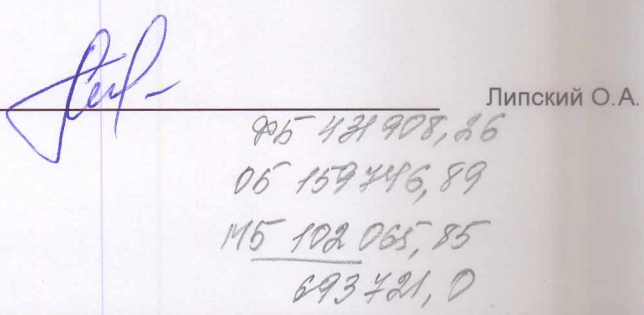 Липский О.А.
ФБ 431908,26
ОБ 159746,89
МБ 102065,85
693721,0